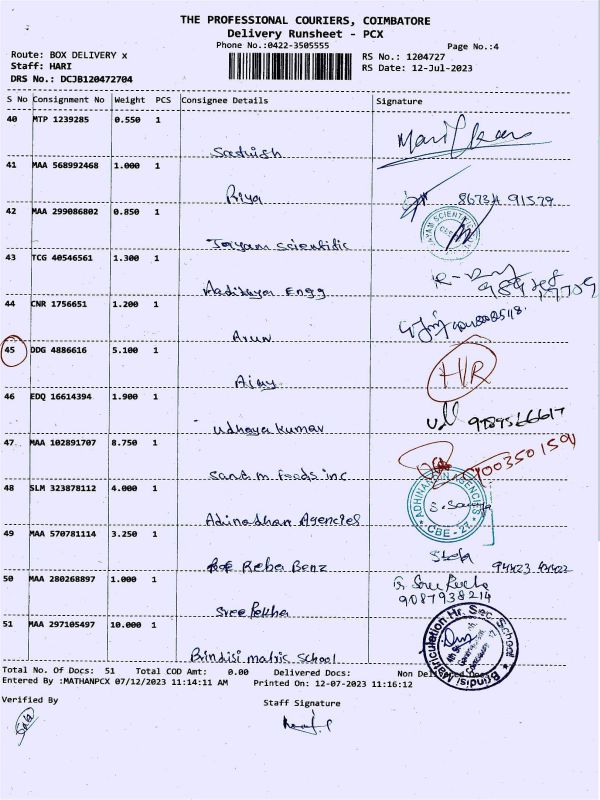 THE PROFESSIONAL COURIERS, COIMBATORE
Delivery Runsheet - PCX
Phone No.:0422-3505555 Page No.:4
Route: BOX DELIVERY x
Staff: HARI RS No.: 1204727
DRS No.: DCJB120472704 RS Date: 12-Jul-2023
S No Consignment No Weight PCS Consignee Details Signature
40 MTP 1239285 0.550 1
Sathish
41 MAA 568992468 1.000 1
Priya
42 MAA 299086802 0.850 1
Jayam Scientific
43 TCG 40546561 1.300 1
Aadithya Engg
44 CNR 1756651 1.200 1
Arun
45 DDG 4886616 5.100 1 H/R
Ajay
46 EDQ 16614394 1.900 1
Udhaya Kumar
47 MAA 102891707 8.750 1
foods inc
48 SLM 323878112 4.000 1
Adinadhan Agencies
49 MAA 570781114 3.250 1
Reba Benz
50 MAA 280268897 1.000 1
9087938214
Sree Rekha
51 MAA 297105497 10.000 1
Brindisi matric School
Total No. Of Docs: 51 Total COD Amt: 0.00 Delivered Docs: Non
Entered By :MATHANPCX 07/12/2023 11:14:11 AM Printed On: 12-07-2023 11:16:12
Verified By Staff Signature